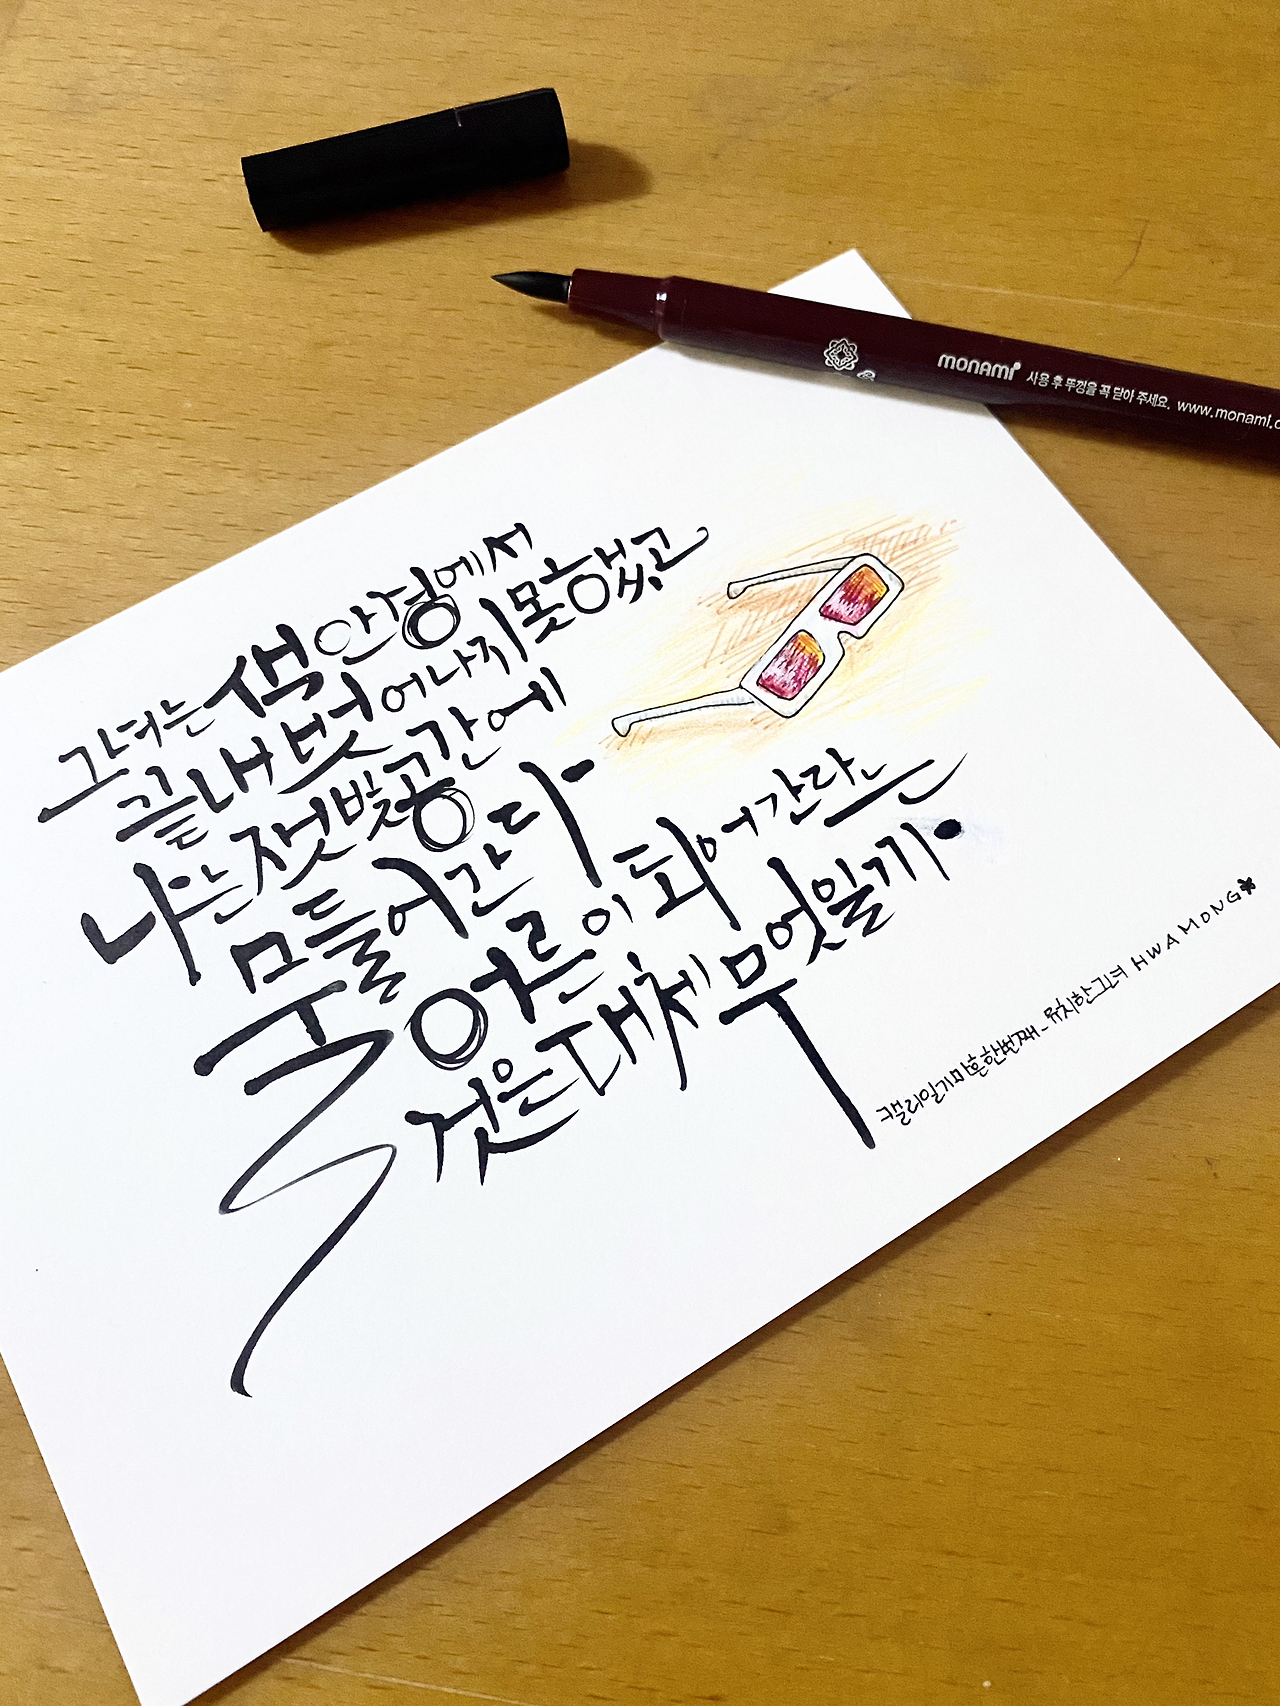 monami 사용 후 뚜껑을 꼭 닫아 주세요. www.monami.c
그녀는 색안경에서
끝내 벗어나지 못했고
나는 잿빛공간에
물들어간다.
어른이 되어간다는
것은 대체 무엇일까.
캘리일기마흔한번째_유치한그녀 HWAMONG*